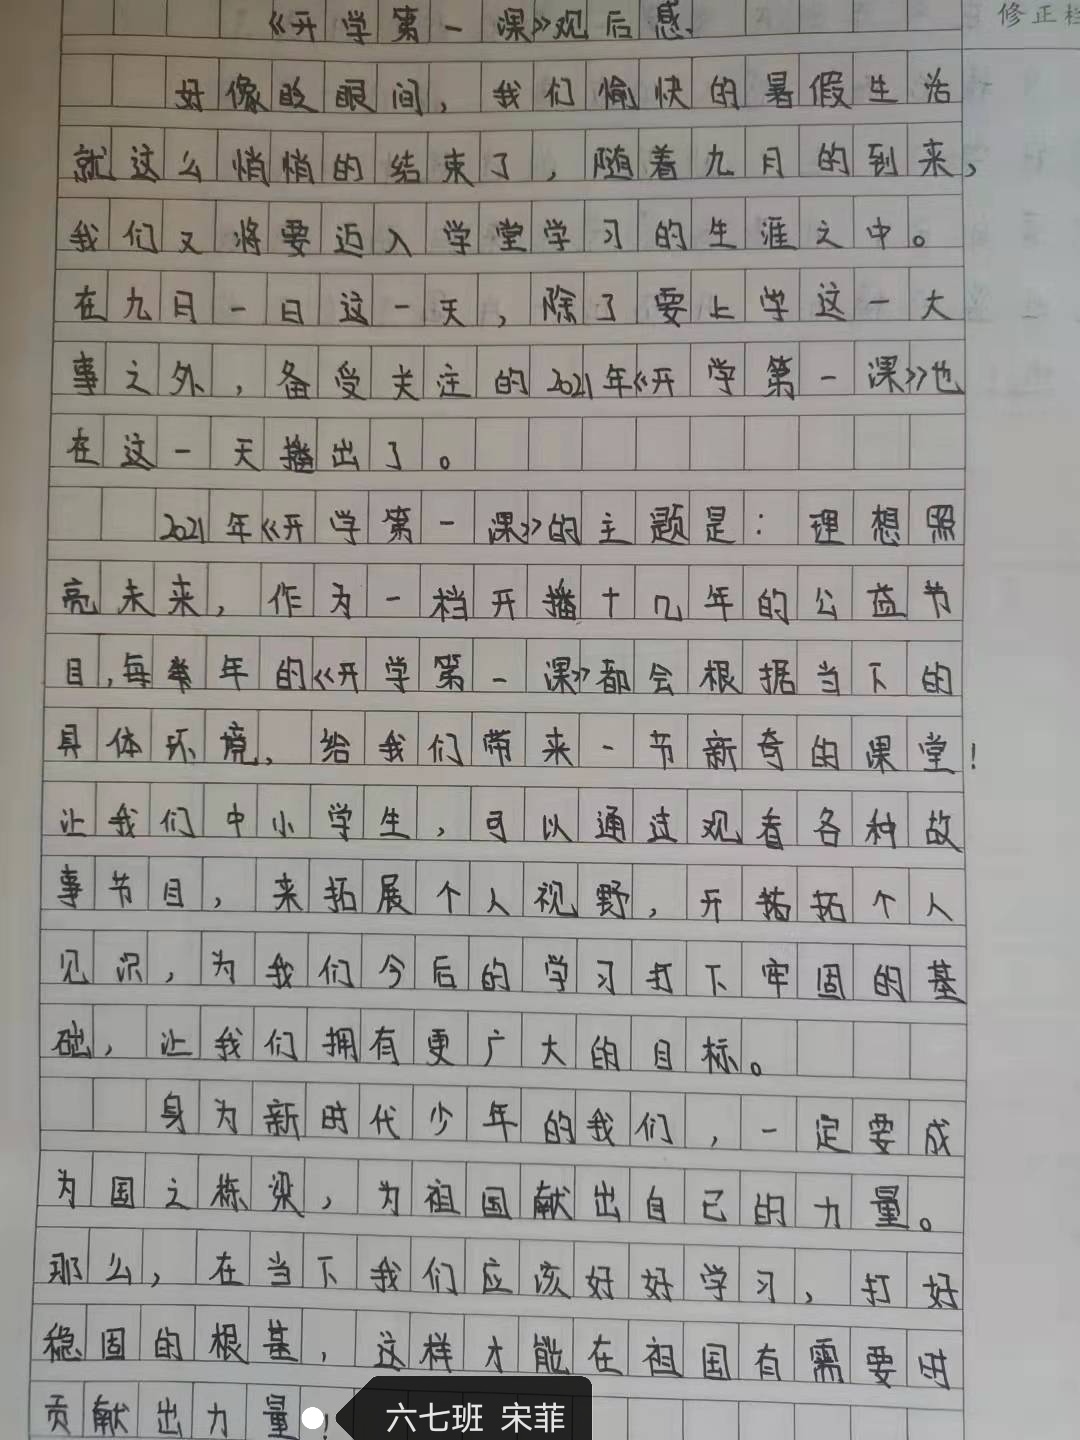 修正栏
《开学第一课》观后感
好像眨眼间，我们愉快的暑假生活
就这么悄悄的结束了，随着九月的到来，
我们又将要迈入学堂学习的生涯之中。
在九月一日这一天，除了要上学这一大
事之外，备受关注的2021年《开学第一课》也
在这一天播出了。
2021年《开学第一课》的主题是：理想照
亮未来，作为一档开播十几年的公益节
目，每年的《开学第一课》都会根据当下的
具体环境，给我们带来一节新奇的课堂！
让我们中小学生，可以通过观看各种故
事节目，来拓展个人视野，开拓个人
见识，为我们今后的学习打下牢固的基
础，让我们拥有更广大的目标。
身为新时代少年的我们，一定要成
为国之栋梁，为祖国献出自己的力量。
那么，在当下我们应该好好学习，打好
稳固的根基，这样才能在祖国有需要时
贡献出力量！
六七班 宋菲